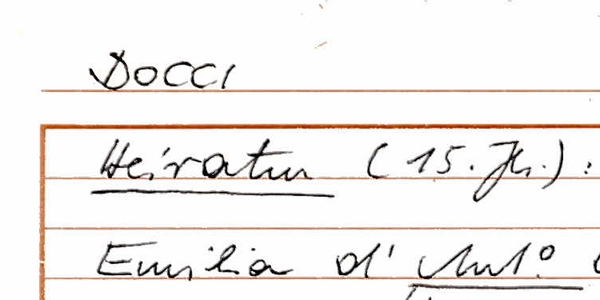 DOCCI
Heiraten (15. Jh.):
Emilia d' Ant.º